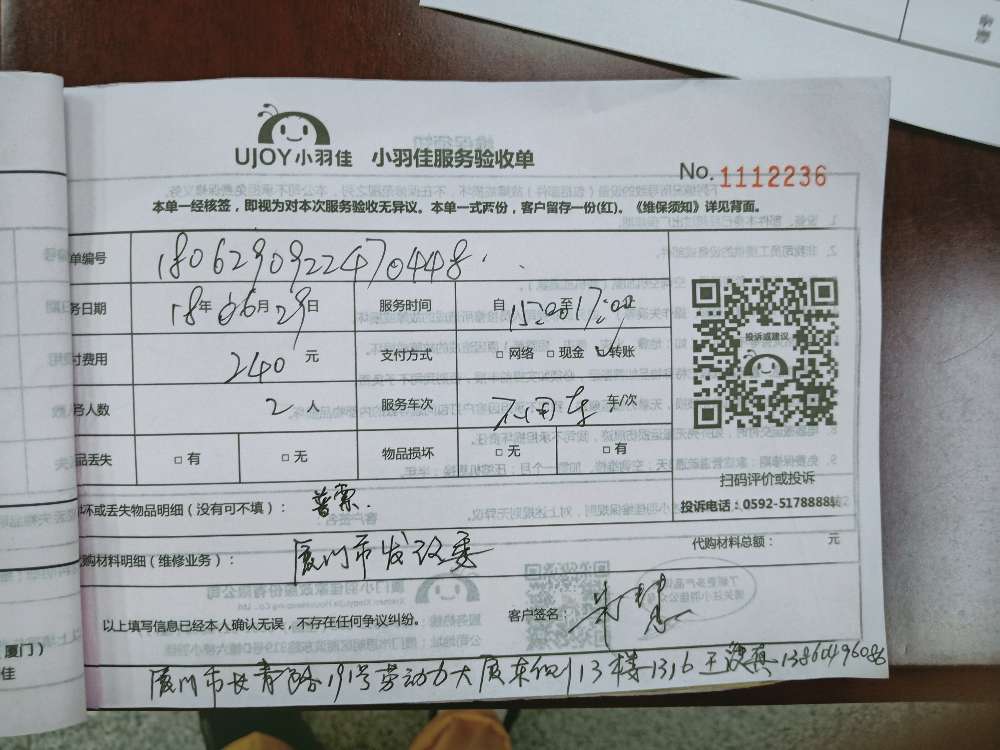 UJOY小羽佳 小羽佳服务验收单
No.1112236
本单一经核签，即视为对本次服务验收无异议。本单一式两份，客户留存一份(红)。《维保须知》详见背面。
单编号 1806290922470448
务日期 18年06月29日 服务时间 自15:20至17:20止
付费用 240元 支付方式 □网络 □现金 □转账
务人数 2人 服务车次 不同车 车/次
品丢失 □有 □无 物品损坏 □无 □有
投诉或建议
扫码评价或投诉
投诉电话：0592-5178888转2
坏或丢失物品明细（没有可不填）： 普票.
代购材料明细（维修业务）： 厦门市发改委
代购材料总额： 元
以上填写信息已经本人确认无误，不存在任何争议纠纷。
客户签名
厦门市长青路191号劳动力大厦东侧13楼1316王 13860496086
厦门）
佳